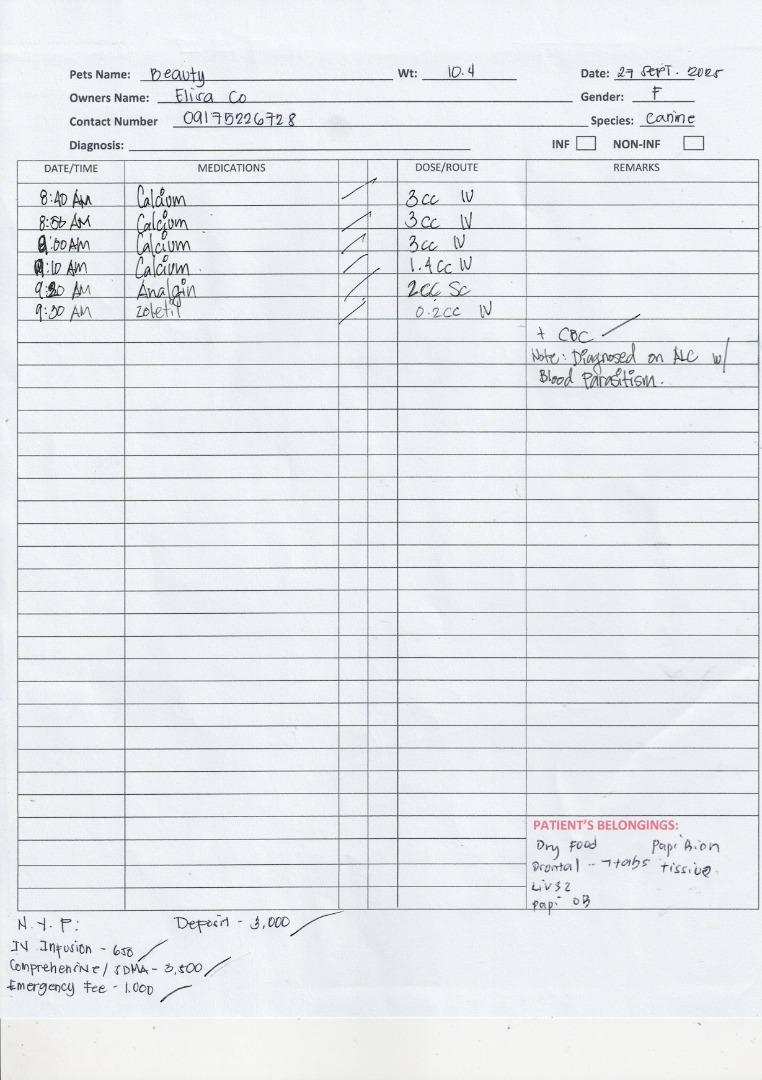 Pets Name: Beauty Wt: 10.4 Date: 27 SEPT. 2025
Owners Name: Elisa Co Gender: F
Contact Number 09175226728 Species: Canine
Diagnosis: INF NON-INF
DATE/TIME MEDICATIONS DOSE/ROUTE REMARKS
8:40 AM Calcium 3cc IV
8:50 AM Calcium 3cc IV
9:00 AM Calcium 3cc IV
9:10 AM Calcium 1.4cc IV
9:20 AM Analgin 2cc SC
9:30 AM Zoletil 0.2cc IV
+ CBC
Note: Diagnosed on ALC w/
Blood Parasitism.
PATIENT'S BELONGINGS:
Dry Food Papi Bion
Drontal -- 7tabs tissue
Liv52
Papi OB
N.Y.P: Deposit - 3,000
IV Infusion - 650
Comprehensive/ SDMA - 3,500
Emergency Fee - 1,000